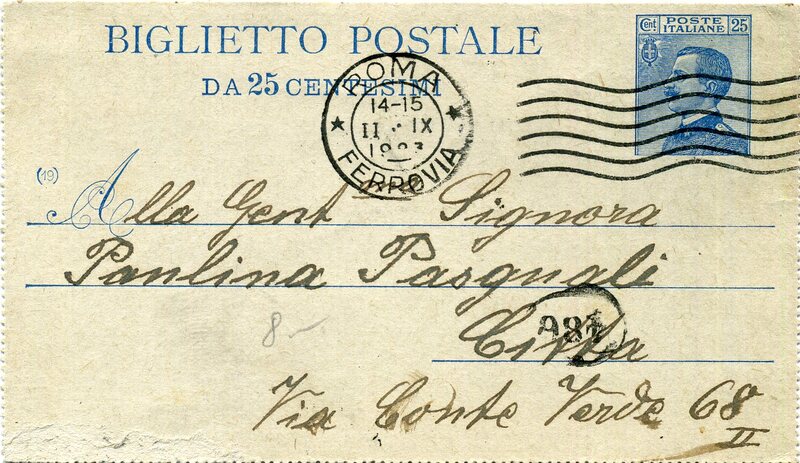 Cent. POSTE ITALIANE 25
BIGLIETTO POSTALE
DA 25 CENTESIMI
ROMA
14-15
II · IX
1923
FERROVIA
(19)
Alla Gent Signora
Paulina Pasquali
8-
Città
Via Conte Verde 68
II